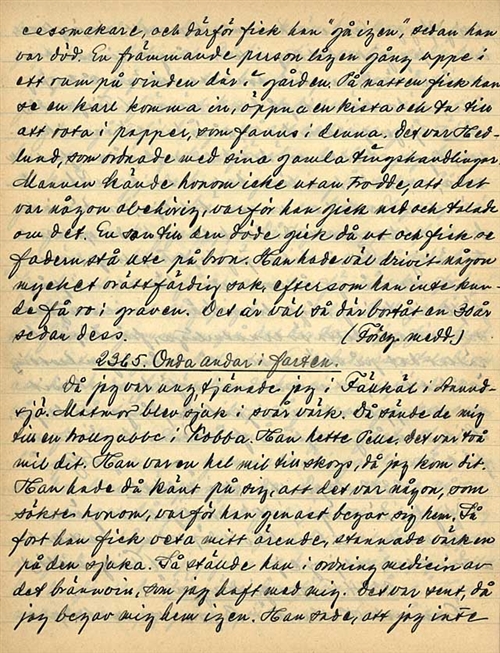 cessmakare, och därför fick han "gå igen", sedan han
var död. En främmande person låg en gång uppe i
ett rum på vinden där i gården. På natten fick han
se en karl komma in, öppna en kista och ta till
att rota i papper, som fanns i denna. Det var Hed-
lund, som ordnade med sina gamla tingshandlingar.
Mannen kände honom icke utan trodde, att det
var någon obehörig, varför han gick ned och talade
om det. En son till den döde gick då ut och fick se
fadern stå ute på bron. Han hade väl drivit någon
mycket orättfärdig sak, eftersom han inte kun-
de få ro i graven. Det är väl så där bortåt en 30 år
sedan dess. (Föreg. medd.)
2365. Onda andar i farten.
Då jag var ung tjänade jag i i Anund-
sjö. Matmor blev sjuk i svår värk. Då sände de mig
till en trollgubbe i Kobba. Han hette Pelle. Det var två
mil dit. Han var en hel mil till skogs, då jag kom dit.
Han hade då känt på sig, att det var någon, som
sökte honom, varför han genast begav sig hem. Så
fort han fick veta mitt ärende, stannade värken
på den sjuka. Så ställde han i ordning medicin av
det brännvin, som jag haft med mig. Det var sent, då
jag begav mig hem igen. Han sade, att jag inte